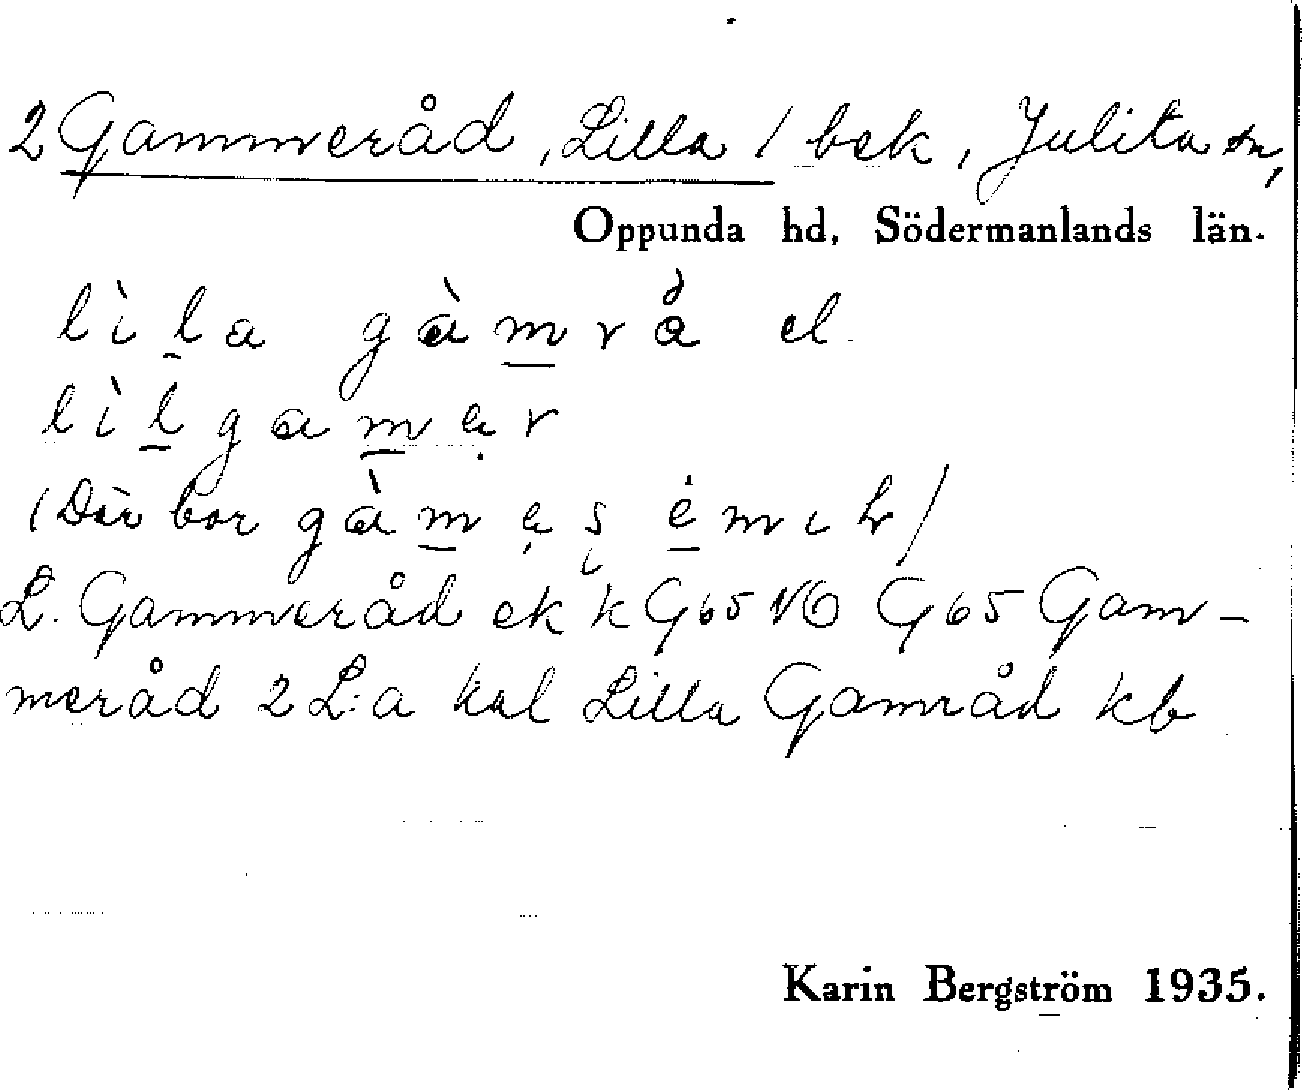 2 Gammeråd, Lilla / bek, Julita sn,
Oppunda hd, Södermanlands län.
lìla gàmrå el.
lìlgamẹr
(Där bor gàmẹs
L. Gammeråd ek k G65 NO G65 Gam-
meråd 2 L:a kal Lilla Gamråd kb
Karin Bergström 1935.